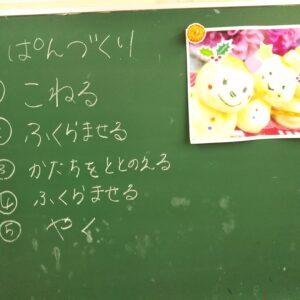 ぱんづくり
① こねる
② ふくらませる
③ かたちをととのえる
④ ふくらませる
⑤ やく